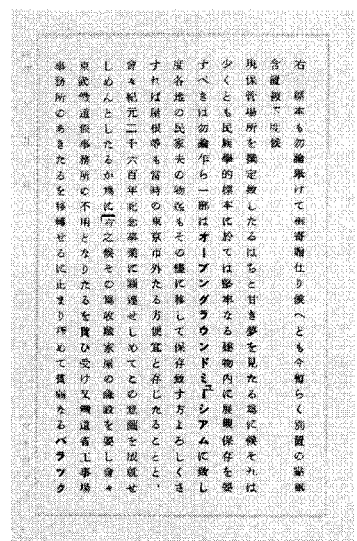 右　標本も勿論挙げて御寄贈仕り候へども今暫らく別置の御藏
含置被下度候
現保管場所を撰定致したるはちと甘き夢を見たる爲に候それは
少くとも民族學的標本に於ては堅牢なる建物內に展觀保存を要
すべきは勿論乍ら一部はオープングラウンドミューシアムに致し
度各地の民家夫の物迄もその儘に移して保存致す方よろしくさ
すれば屋根等も當時の東京市外たる方便宜と存じたることと、
會々紀元二千六百年記念事業に關連せしめてこの意圖を成就せ
しめんとしたるが爲に有之候その爲收藏家屋の施設を要し會々
東武鐵道假事務所の不用となりたるを貰ひ受け又鐵道省工事場
事務所のあきたるを移轉せるに止まり所めて貧弱なるバラック